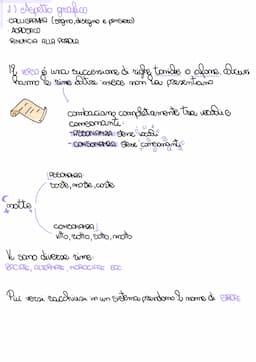 1) Aspetto grafico
CALLIGRAMMA (segno, disegno e pensiero)
ACROSTICO
RINUNCIA ALLA PAROLA
Il verso è una successione di righe tonde o alfane. Alcuni
hanno le rime altre invece non la presentano
combaciano completamente tra vocali e
consonanti.
- ASSONANZA dene vocali
- CONSONANZA dene consonanti
ASSONANZA
notte
CONSONANZA
Vi sono diverse rime:
BACIATE, ALTERNATE, INCROCIATE ECC
Più versi racchiusi in un sistema prendono il nome di STROFE